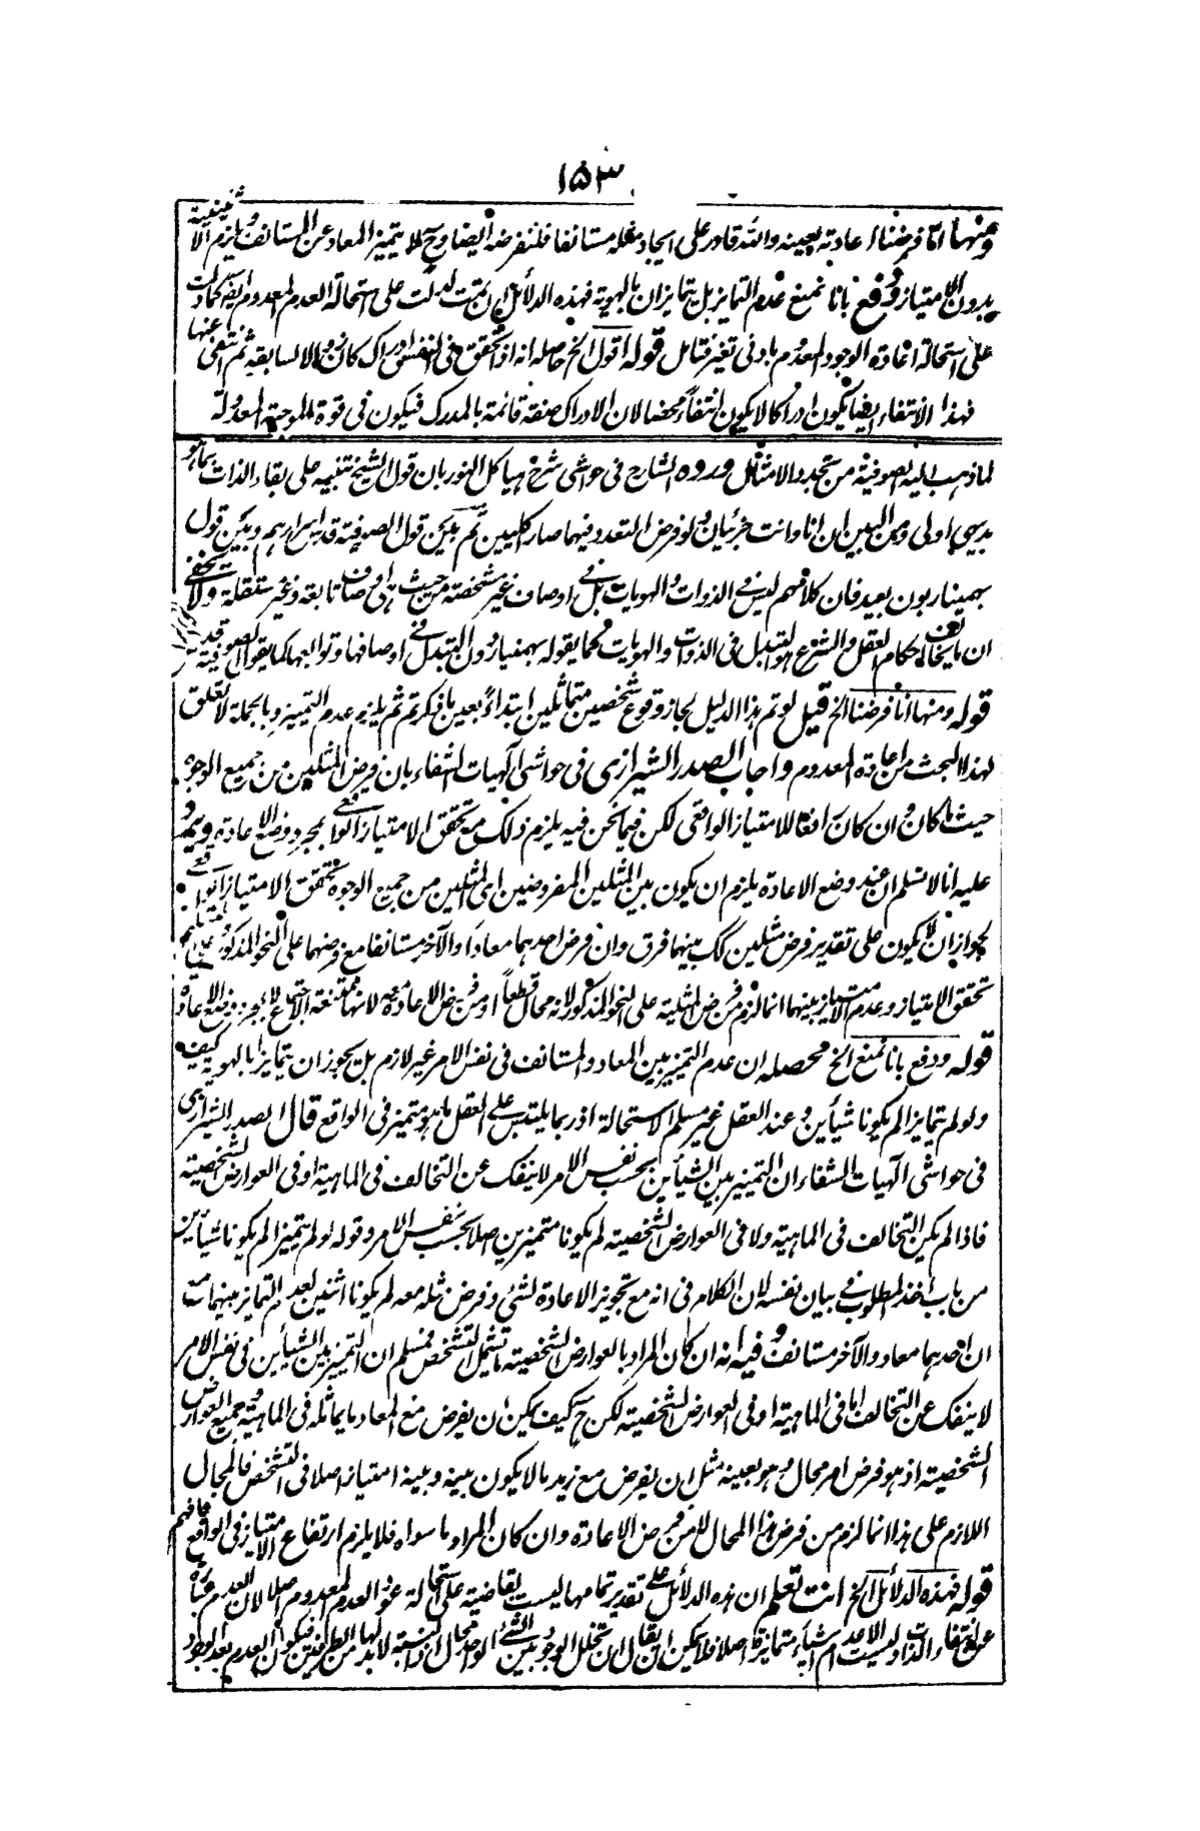 ١٥٣
ومنها انا فرضنا اعادته بعينه والله قادر على ايجاد مثله مستانفا فلنفرضه ايضا وح لا يتميز المعاد عن المستانف ويلزم الاثنينية
بدون الامتياز ودفع بانا نمنع عدم التمايز بل يتمايزان بالهوية فهذه الدلائل ان تمت لدلت على استحالة العدم لمعدوم ايضا كما دلت
على استحالة اعادة الوجود لمعدوم بادنى تغير فتامل قوله اقول الخ حاصله انه اذا تحقق فى النفس ادراك كان زوالا لسابقه ثم انتفى عنها
فهذا الانتفاء ايضا يكون ادراكا لا يكون انتفاءً محضا لان الادراك صفة قائمة بالمدرك فيكون فى قوة الموجبة المعدولة
لما ذهب اليه الصوفية من تجدد الامثال ورده الشارح فى حواشى شرح هياكل النور بان قول الشيخ تنبيه على بقاء الذات بما هو
بديهى اولى ومن البين ان انا وانت جزئيان ولو فرض التعدد فيهما صار كليين ثم بين قول الصوفية قدس اسرارهم وبين قول
بهمنيار بون بعيد فان كلامهم ليس فى الذوات والهويات بل فى اوصاف غير مشخصة من حيث هى اوصاف تابعة وغير مستقلة ولا يخفى
ان ما يخالف احكام العقل والشرع هو التبدل فى الذوات والهويات كما يقوله بهمنيار دون التبدل فى اوصافها وتوابعها كما يقوله الصوفية
قوله ومنها انا فرضنا الخ قيل لو تم هذا الدليل لجاز وقوع شخصين متماثلين ابتداءً بعين ما ذكرتم ثم يلزم عدم التميز وبالجملة لا تعلق
لهذا البحث من اعادة المعدوم واجاب الصدر الشيرازى فى حواشى الٓهيات الشفاء بان فرض المثلين من جميع الوجوه
حيث ما كان وان كان رافعا للامتياز الواقعى لكن فيما نحن فيه يلزم ذلك مع تحقق الامتياز الواقعى بمجرد وضع الاعادة ويرد
عليه انا لا نسلم ان عند وضع الاعادة يلزم ان يكون بين المثلين المفروضين اى المثلين من جميع الوجوه تحقق الامتياز الواقعى
لجواز ان لا يكون على تقدير فرض مثلين كك بينهما فرق وان فرض احدهما معادا والآخر مستانفا مع فرضهما على النحو المذكور
تحقق الامتياز وعدم الامتياز بينهما انما لزم من فرض المثلية على النحو المذكور لانه محال قطعاً او من فرض الاعادة معه لانهما ممتنعة الاجتماع لا بمجرد وضع الاعادة
قوله ودفع بانا نمنع الخ محصله ان عدم التميز بين المعاد والمستانف فى نفس الامر غير لازم بل يجوز ان يتمايزا بالهوية كيف
ولو لم يتمايزا لم يكونا شيأين وعند العقل غير مسلم الاستحالة اذ ربما يلتبس على العقل ما هو متميز فى الواقع قال الصدر الشيرازى
فى حواشى الٓهيات الشفاء ان التميز بين الشيأين بحسب نفس الامر لا ينفك عن التخالف فى الماهية او فى العوارض الشخصية
فاذا لم يكن التخالف فى الماهية ولا فى العوارض الشخصية لم يكونا متميزين اصلا بحسب نفس الامر وقوله لو لم يتميزا لم يكونا شيأين
من باب اخذ المطلوب فى بيان نفسه لان الكلام فى انه مع تجويز الاعادة لشئ وفرض مثله معه لم يكونا اثنين لعدم التمايز بينهما مع
ان احدهما معاد والآخر مستانف وفيه انه ان كان المراد بالعوارض الشخصية ما تشمل التشخص فمسلم ان التميز بين الشيأين فى نفس الامر
لا ينفك عن التخالف اما فى الماهية او فى العوارض الشخصية لكن ح كيف يمكن ان يفرض مع المعاد ما يماثله فى الماهية وجميع العوارض
الشخصية اذ هو فرض امر محال وهو بعينه مثل ان يفرض مع زيد ما لا يكون بينه وبينه امتياز اصلا فى التشخص فالمحال
اللازم على هذا انما لزم من فرض هذا المحال لا من فرض الاعادة وان كان المراد ما سواه فلا يلزم ارتفاع الامتياز فى الواقع فافهم
قوله فهذه الدلائل الخ انت تعلم ان هذه الدلائل على تقدير تمامها ليست بقاضية على استحالة عود العدم لمعدوم اصلا لان العدم عبارة
عن انتفاء الذات وليست الاعدام اشياء متمايزة اصلا فلا يمكن ان يقال ان تخلل الوجود بين الشئ الواحد محال اذ النسبة لا بد لها من الطرفين فيكون العدم بعد الوجود